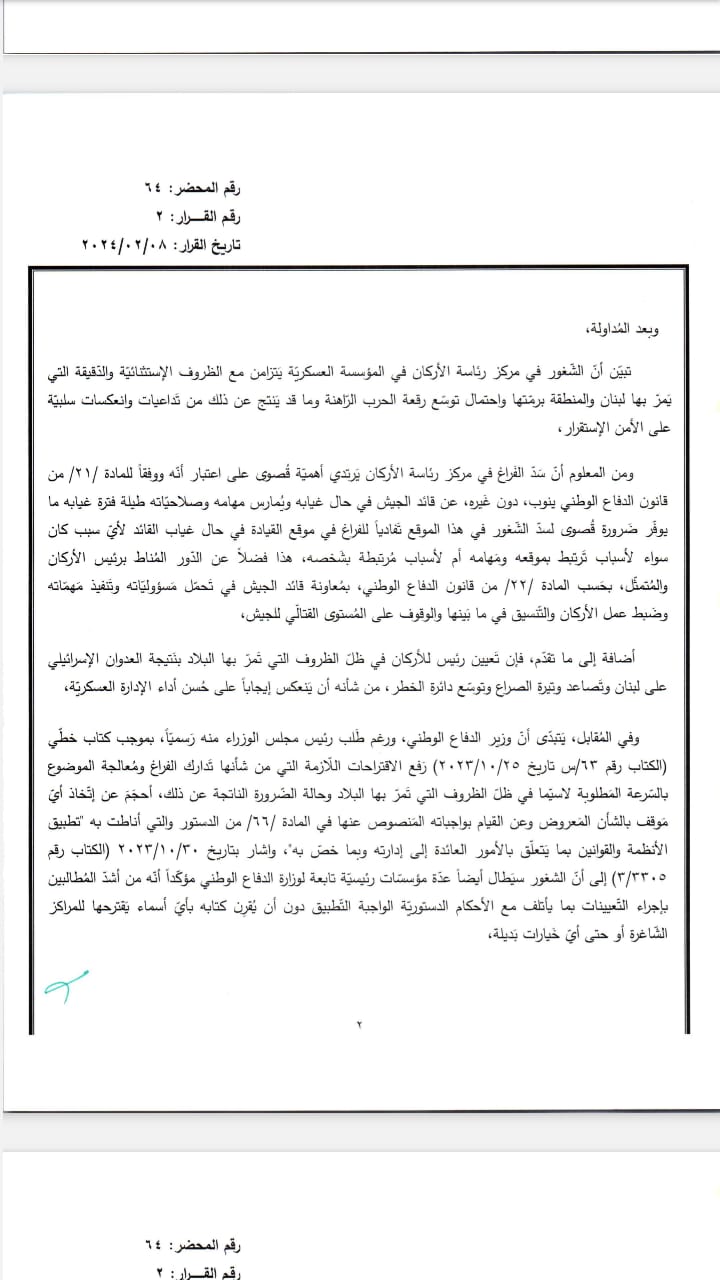 رقم المحضر: ٦٤
رقم القـــرار: ٢
تاريخ القرار: ٢٠٢٤/٠٢/٠٨
وبعد المُداولة،
تبيّن أنّ الشّغور في مركز رئاسة الأركان في المؤسسة العسكريّة يَتزامن مع الظروف الإستثنائيّة والدّقيقة التي
يَمرّ بها لبنان والمنطقة برمّتها واحتمال توسّع رقعة الحرب الرّاهنة وما قد يَنتج عن ذلك من تَداعيات وانعكسات سلبيّة
على الأمن الإستقرار،
ومن المعلوم أنّ سَدّ الفَراغ في مركز رئاسة الأركان يَرتدي أهميّة قُصوى على اعتبار أنّه ووفقاً للمادة /٢١/ من
قانون الدفاع الوطني ينوب، دون غيره، عن قائد الجيش في حال غيابه ويُمارس مهامه وصلاحيّاته طيلة فترة غيابه ما
يوفّر ضَرورة قُصوى لسدّ الشّغور في هذا الموقع تَفادياً للفراغ في موقع القيادة في حال غياب القائد لأيّ سبب كان
سواء لأسباب تَرتبط بموقعه ومَهامه أم لأسباب مُرتبطة بشَخصه، هذا فضلاً عن الدّور المُناط برئيس الأركان
والمُتمثّل، بحَسب المادة /٢٢/ من قانون الدفاع الوطني، بمُعاونة قائد الجيش في تَحمّل مَسؤوليّاته وتَنفيذ مَهمّاته
وضَبط عمل الأركان والتّنسيق في ما بَينها والوقوف على المُستوى القتالّي للجيش،
أضافة إلى ما تقدّم، فإن تَعيين رئيس للأركان في ظلّ الظروف التي تَمرّ بها البلاد بنَتيجة العدوان الإسرائيلي
على لبنان وتَصاعد وتيرة الصراع وتوسّع دائرة الخطر، من شأنه أن يَنعكس إيجاباً على حُسن أداء الإدارة العسكريّة،
وفي المُقابل، يَتبدّى أنّ وزير الدفاع الوطني، ورغم طَلب رئيس مجلس الوزراء منه رَسميّاً، بموجب كتاب خطّي
(الكتاب رقم ٦٣/س تاريخ ٢٠٢٣/١٠/٢٥) رَفع الاقتراحات اللّازمة التي من شأنها تَدارك الفراغ ومُعالجة الموضوع
بالسّرعة المَطلوبة لاسيّما في ظلّ الظروف التي تَمرّ بها البلاد وحالة الضّرورة الناتجة عن ذلك، أحجَمَ عن إتّخاذ أيّ
مَوقف بالشأن المَعروض وعن القيام بواجباته المَنصوص عنها في المادة /٦٦/ من الدستور والتي أناطت به "تَطبيق
الأنظمة والقوانين بما يَتعلّق بالأمور العائدة إلى إدارته وبما خصّ به"، واشار بتاريخ ٢٠٢٣/١٠/٣٠ (الكتاب رقم
٣/٣٣٠٥) إلى أنّ الشغور سيَطال أيضاً عدّة مؤسسّات رئيسيّة تابعة لوزارة الدفاع الوطني مؤكّداً أنّه من أشدّ المُطالبين
بإجراء التّعيينات بما يأتلف مع الأحكام الدستوريّة الواجبة التّطبيق دون أن يُقرِن كتابه بأيّ أسماء يَقترحها للمراكز
الشّاغرة أو حتى أيّ خَيارات بَديلة،
٢
رقم المحضر: ٦٤
رقم القـــرار: ٢